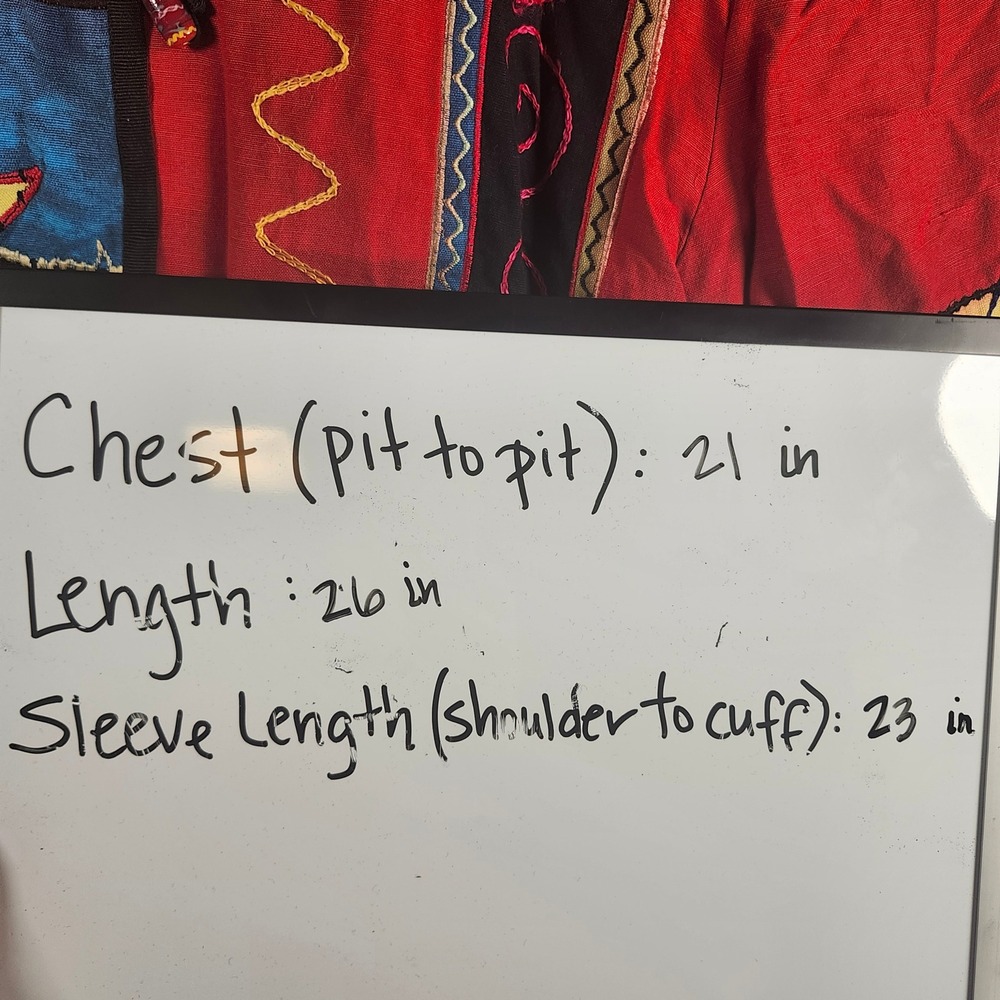 Chest (pit to pit): 21 in
Length : 26 in
Sleeve Length (shoulder to cuff): 23 in